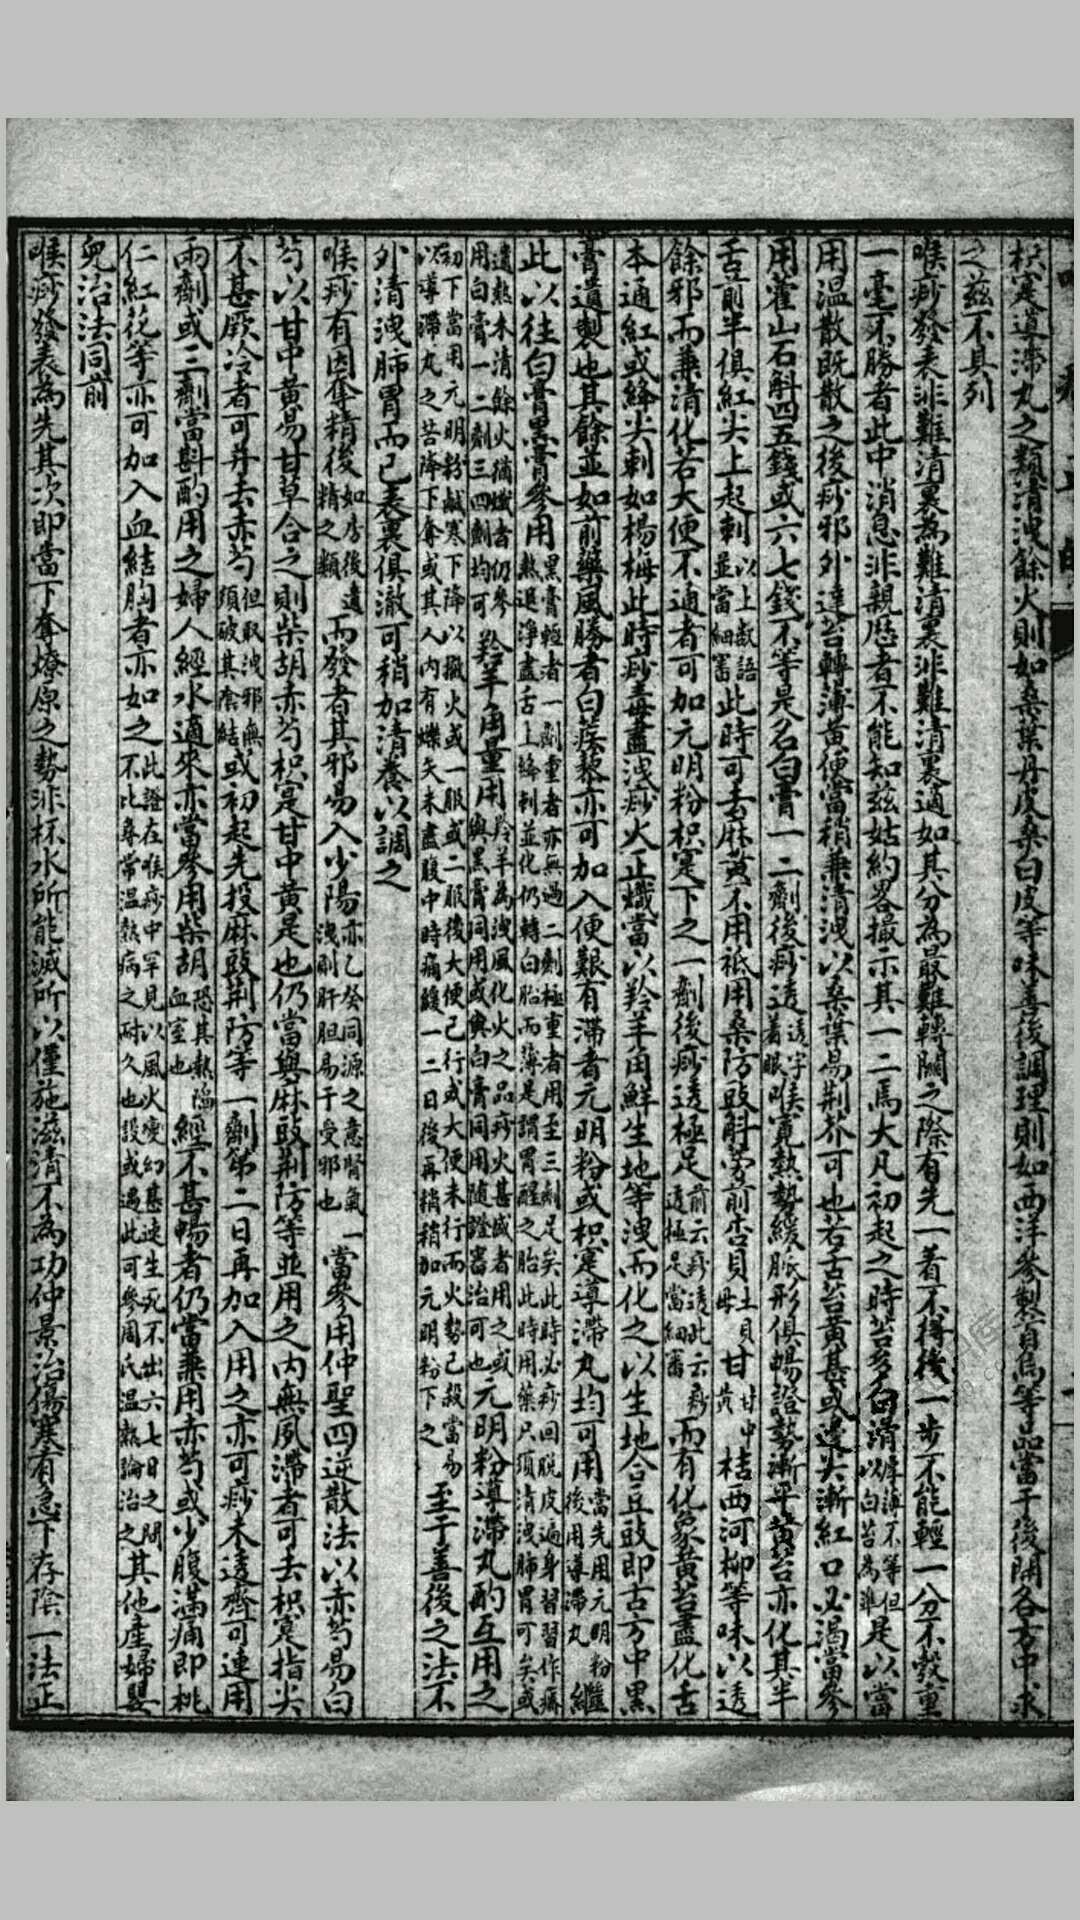 枳寔導滯丸之類清洩餘火則如桑葉丹皮桑白皮等味善後調理則如西洋參製首烏等品當于後開各方中求
之兹不具列
喉痧發表非難清裏為難清裏非難清裏適如其分為最難轉關之際有先一着不得後一步不能輕一分不彀重
一毫不勝者此中消息非親歷者不能知兹姑約畧撮示其一二焉大凡初起之時苔多白滑厚薄不等但以白苔為準是以當
用温散既散之後痧邪外達苔轉薄黄便當稍兼清洩以桑葉易荆芥可也若舌苔黄甚或邊尖漸紅口必渴當參
用藿山石斛四五錢或六七錢不等是名白膏一二劑後痧透透字着眼喉寛熱勢緩脈形俱暢證勢漸平黄苔亦化其半
舌前半俱紅尖上起刺以上數語並當細審此時可去麻黄不用祇用桑防豉斛蒡前杏貝土貝母甘甘中黄桔西河柳等味以透
餘邪而兼清化若大便不通者可加元明粉枳寔下之一劑後痧透極足前云痧透此云痧透極足當細審而有化象黄苔盡化舌
本通紅或絳尖刺如楊梅此時痧毒盡洩痧火正熾當以羚羊角鮮生地等洩而化之以生地合豆豉即古方中黒
膏遺製也其餘並如前藥風勝者白蒺藜亦可加入便艱有滯者元明粉或枳寔導滯丸均可用當先用元明粉繼後用導滯丸
此以往白膏黒膏參用黒膏輕者一劑重者亦無過二劑極重者用至三劑足矣此時必痧回脱皮遍身習習作癢熱退淨盡舌上絳刺並化仍轉白胎而薄是謂胃醒之胎此時用藥只須清洩肺胃可矣或
遺熱未清餘火猶熾者仍參用白膏一二劑三四劑均可羚羊角量用羚羊為洩風化火之品痧火甚盛者用之或與黒膏同用或與白膏同用随證審治可也元明粉導滯丸酌互用之
初下當用元明粉鹹寒下降以撤火或一服或二服後大便已行或大便未行而火勢已殺當易以導滯丸之苦降下奪或其人内有燥矢未盡腹中時痛緩一二日後再稍稍加元明粉下之至于善後之法不
外清洩肺胃而已表裏俱澈可稍加清養以調之
喉痧有因奪精後如房後遺精之類而發者其邪易入少陽亦乙癸同源之意腎氣洩則肝胆易于受邪也一當參用仲聖四逆散法以赤芍易白
芍以甘中黄易甘草合之則柴胡赤芍枳寔甘中黄是也仍當與麻豉荆防等並用之内無夙滯者可去枳寔指尖
不甚厥冷者可并去赤芍但取洩邪無須破其陰結或初起先投麻豉荆防等一劑第二日再加入用之亦可痧未透齊可連用
兩劑或三劑當斟酌用之婦人經水適來亦當參用柴胡恐其熱陷血室也經不甚暢者仍當兼用赤芍或少腹滿痛即桃
仁紅花等亦可加入血結胸者亦如之此證在喉痧中罕見以風火變幻甚速生死不出六七日之間不比尋常温熱病之耐久也設或遇此可參周氏温熱論治之其他產婦嬰
兒治法同前
喉痧發表為先其次即當下奪燎原之勢非杯水所能滅所以僅施滋清不為功仲景治傷寒有急下存陰一法正